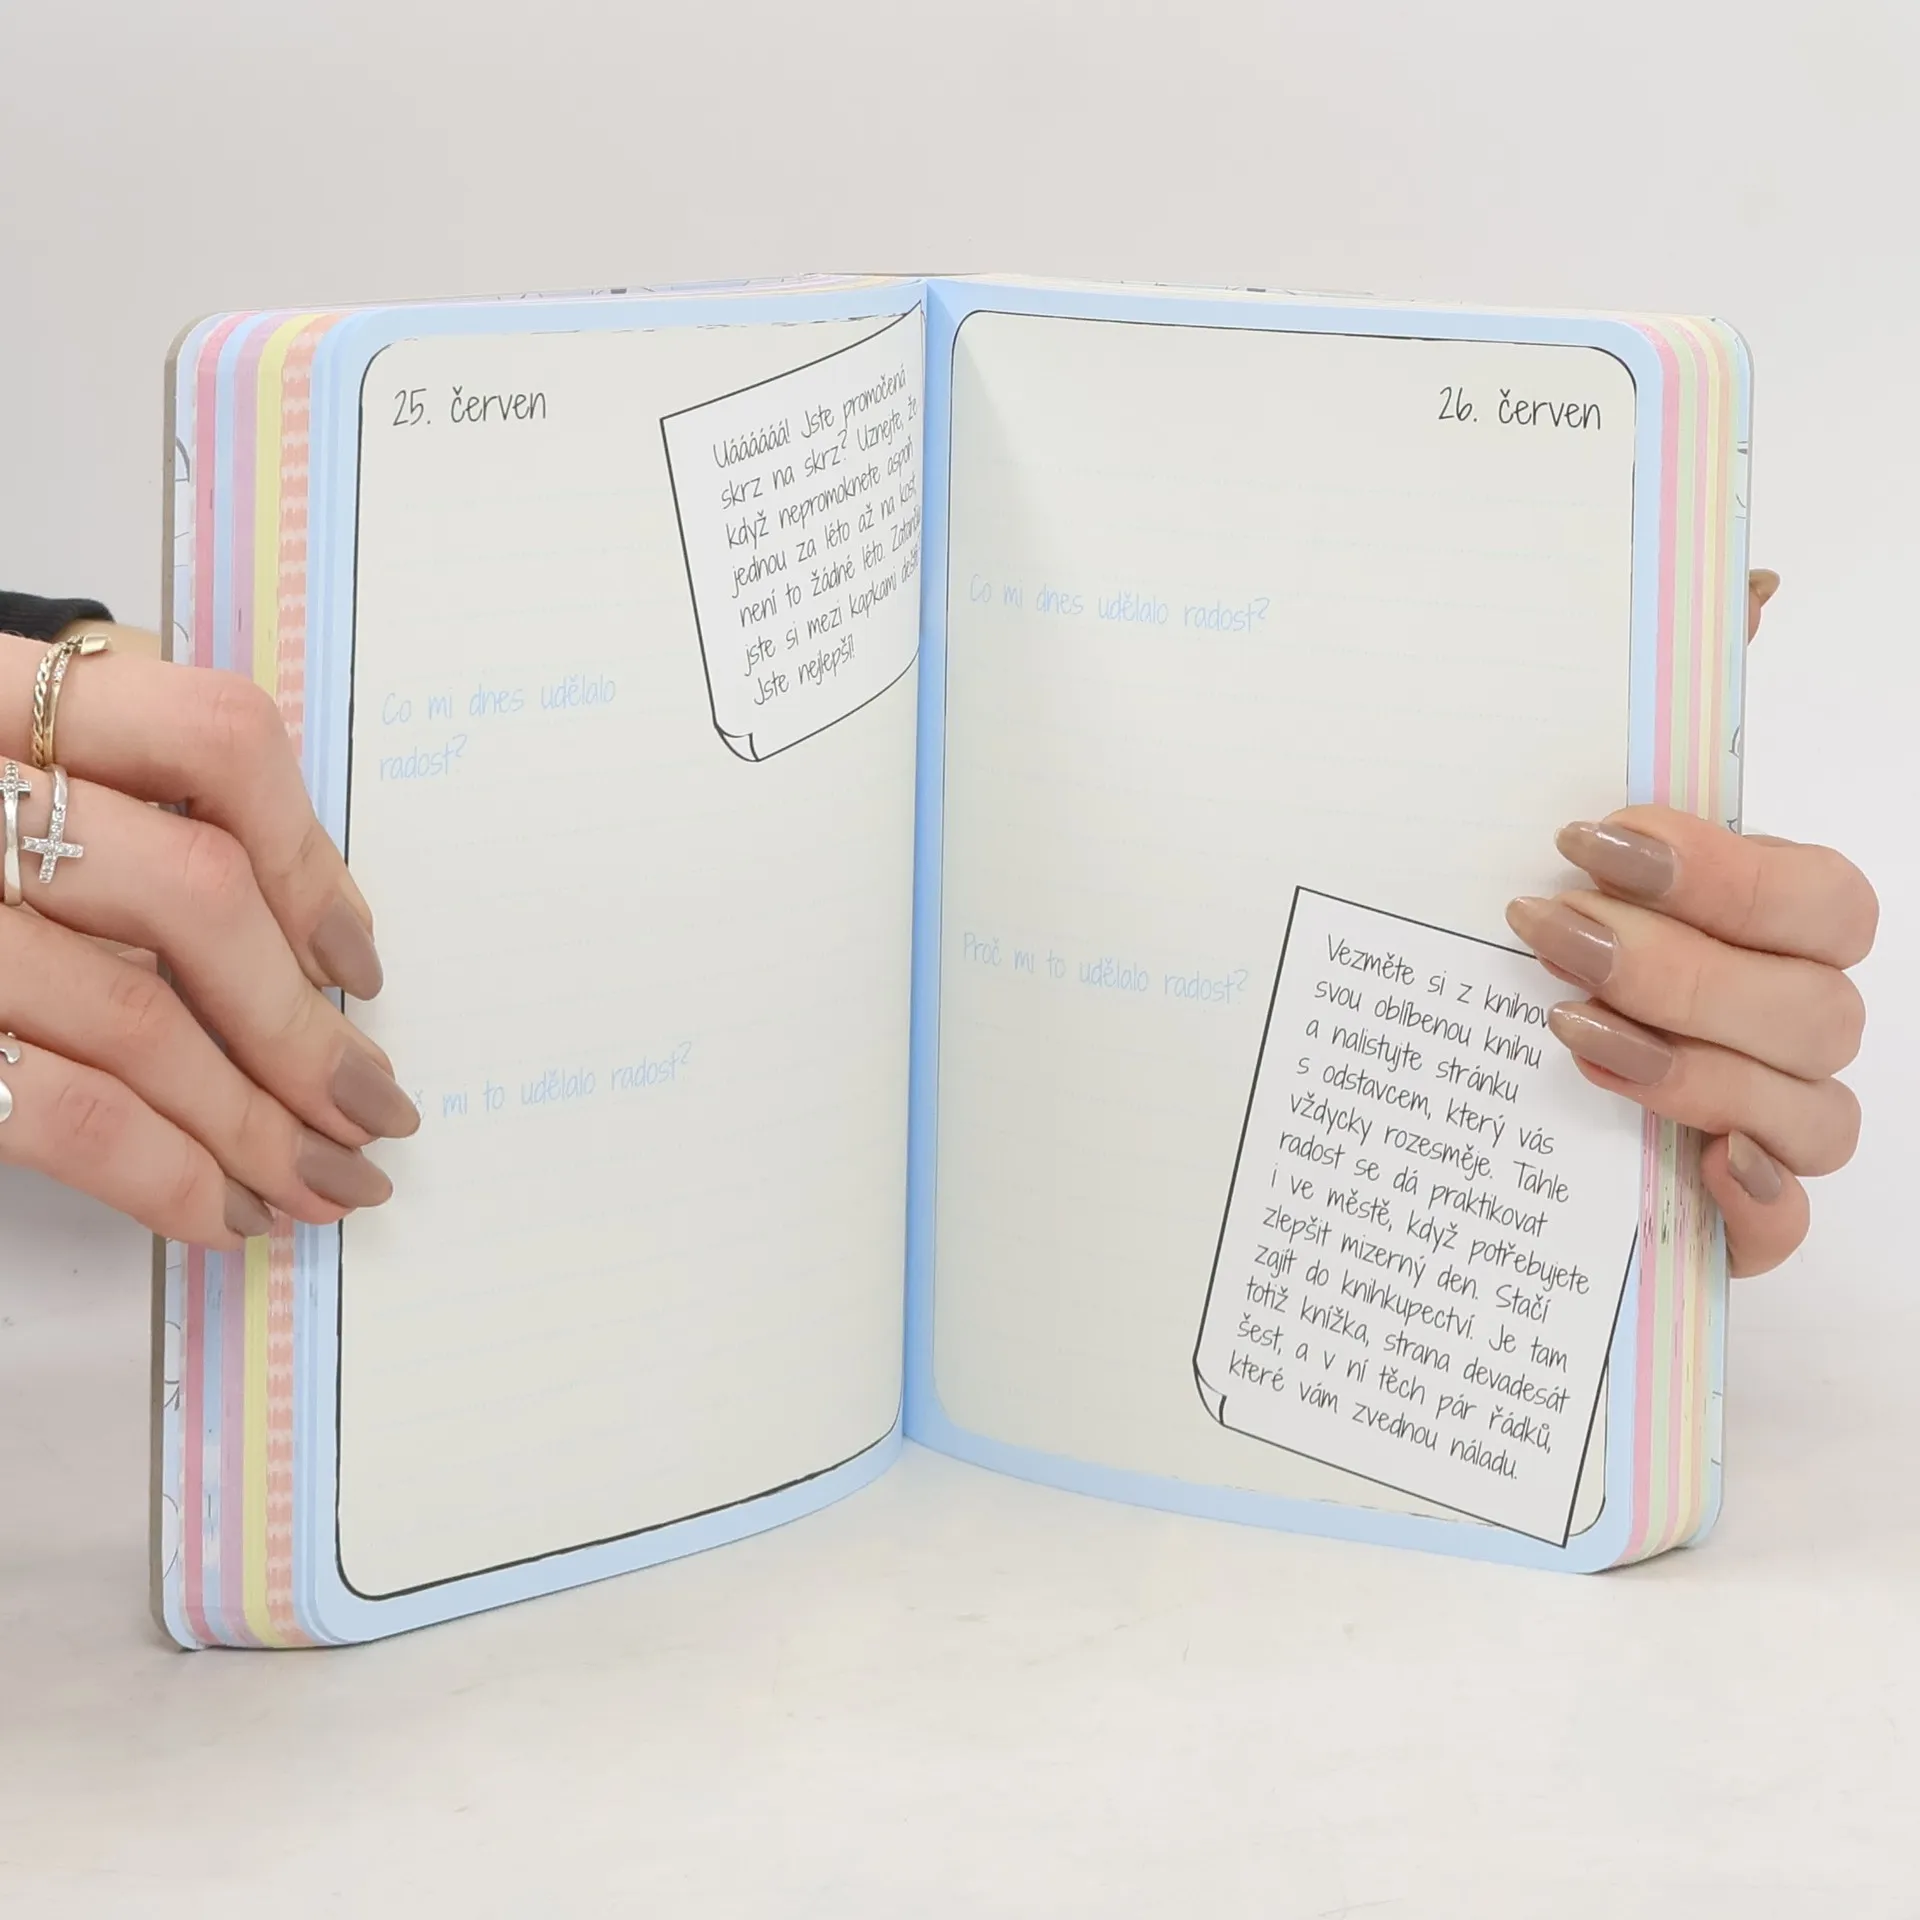 25. červen
Uáááááá! Jste promočená
skrz na skrz? Uznejte, že
když nepromoknete aspoň
jednou za léto až na kost,
není to žádné léto.
jste si mezi kapkami
Jste nejlepší!
Co mi dnes udělalo
radost?
mi to udělalo radost?
26. červen
Co mi dnes udělalo radost?
Proč mi to udělalo radost?
Vezměte si z
svou oblíbenou knihu
a nalistujte stránku
s odstavcem, který vás
vždycky rozesměje. Tahle
radost se dá praktikovat
i ve městě, když potřebujete
zlepšit mizerný den. Stačí
zajít do knihkupectví. Je tam
totiž knížka, strana devadesát
šest, a v ní těch pár řádků,
které vám zvednou náladu.